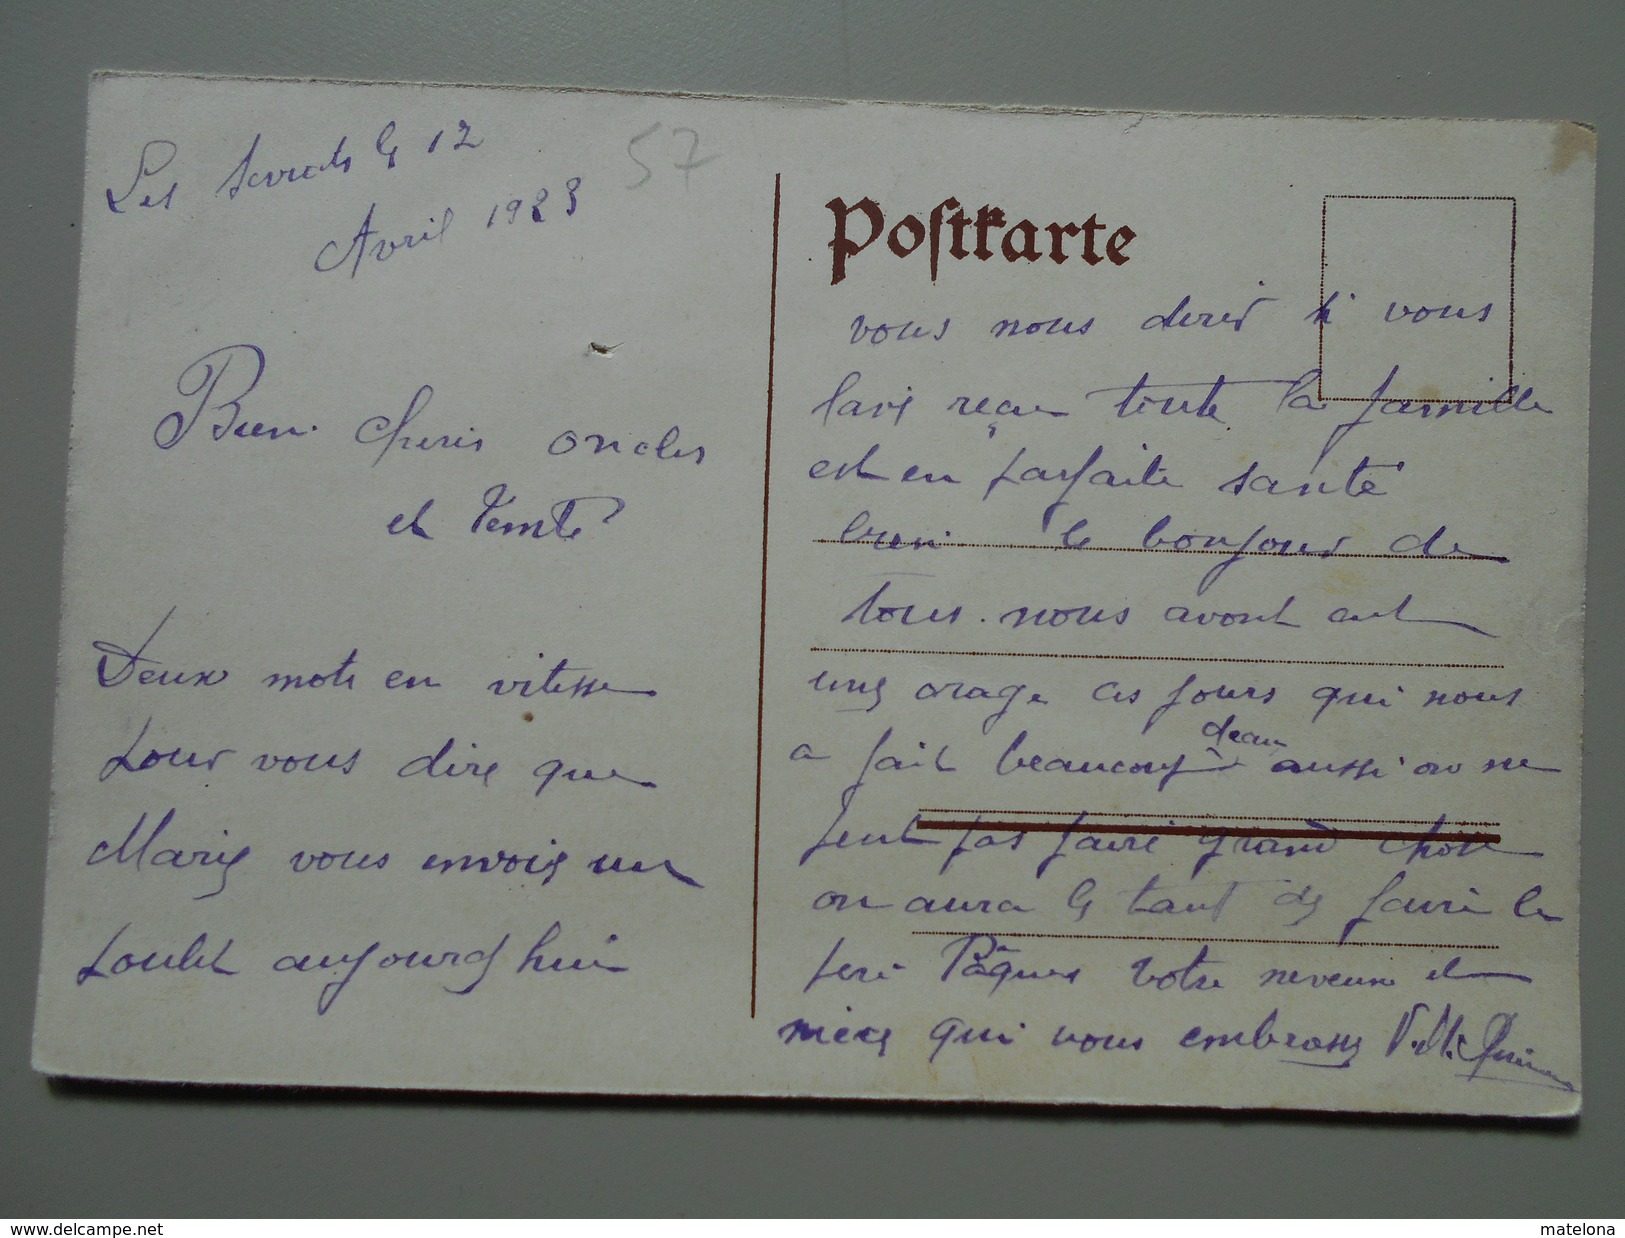 Les le 12
Avril 1923
57
Bien cheris oncles
et Tente
Deux mots en vitesse
pour vous dire que
Marie vous envois un
poulet aujourd hui
Postkarte
vous nous direz si vous
lavé reçu toute la famille
est en parfaite santé
bien le bonjour de
tous. nous avont eut
une orage ces jours qui nous
deau
a fait beaucoup aussi on ne
peut pas faire grand chose
on aura le tant de faire le
feri Pâques Votre neveux et
niece qui vous embrasse V.M.
www.delcampe.net
matelona